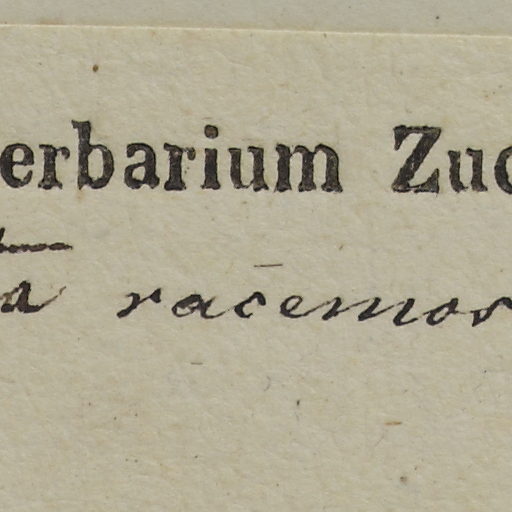 erbarium Zuc
a racemos